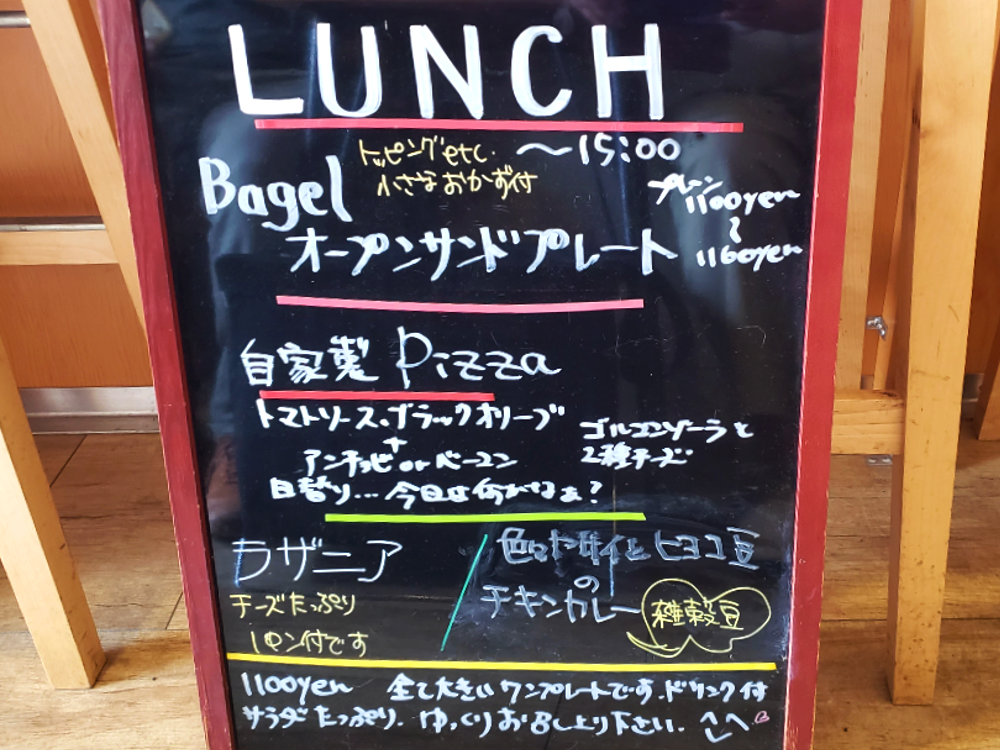 LUNCH
トッピングetc. 〜15:00
Bagel 小さなおかず付
プレーン 1100yen
〜
オープンサンドプレート 1160yen
自家製 Pizza
トマトソース、ブラックオリーブ
+
アンチョビ or ベーコン
ゴルゴンゾーラと
2種チーズ
日替り…今日は何かなぁ?
ラザニア
チーズたっぷり
パン付です
色々野菜とヒヨコ豆
の
チキンカレー
雑穀豆
1100yen 全て大きいワンプレートです。ドリンク付
サラダたっぷり。ゆっくりお召し上り下さい。